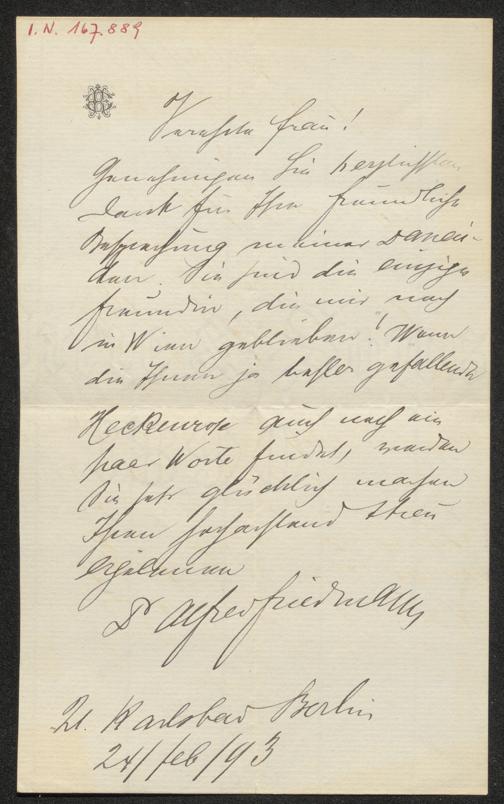 I.N. 167.889
Verehrte Frau!
Genehmigen Sie herzlichsten
Dank für Ihre freundliche
Besprechung meiner
Sie sind die einzige
Freundin, die mir noch
in Wien geblieben! Wenn
die Ihnen ja besser gefallende
Heckenrose auch noch ein
paar Worte findet, werden
Sie sehr glücklich machen
Ihren hochachtend treu
ergebenen
Dr Alfred Friedmann
21. Karlsbad Berlin
24/Feb/93